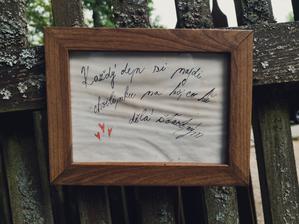 Každý den si najdi
chvilinku na to, co tě
dělá šťastným